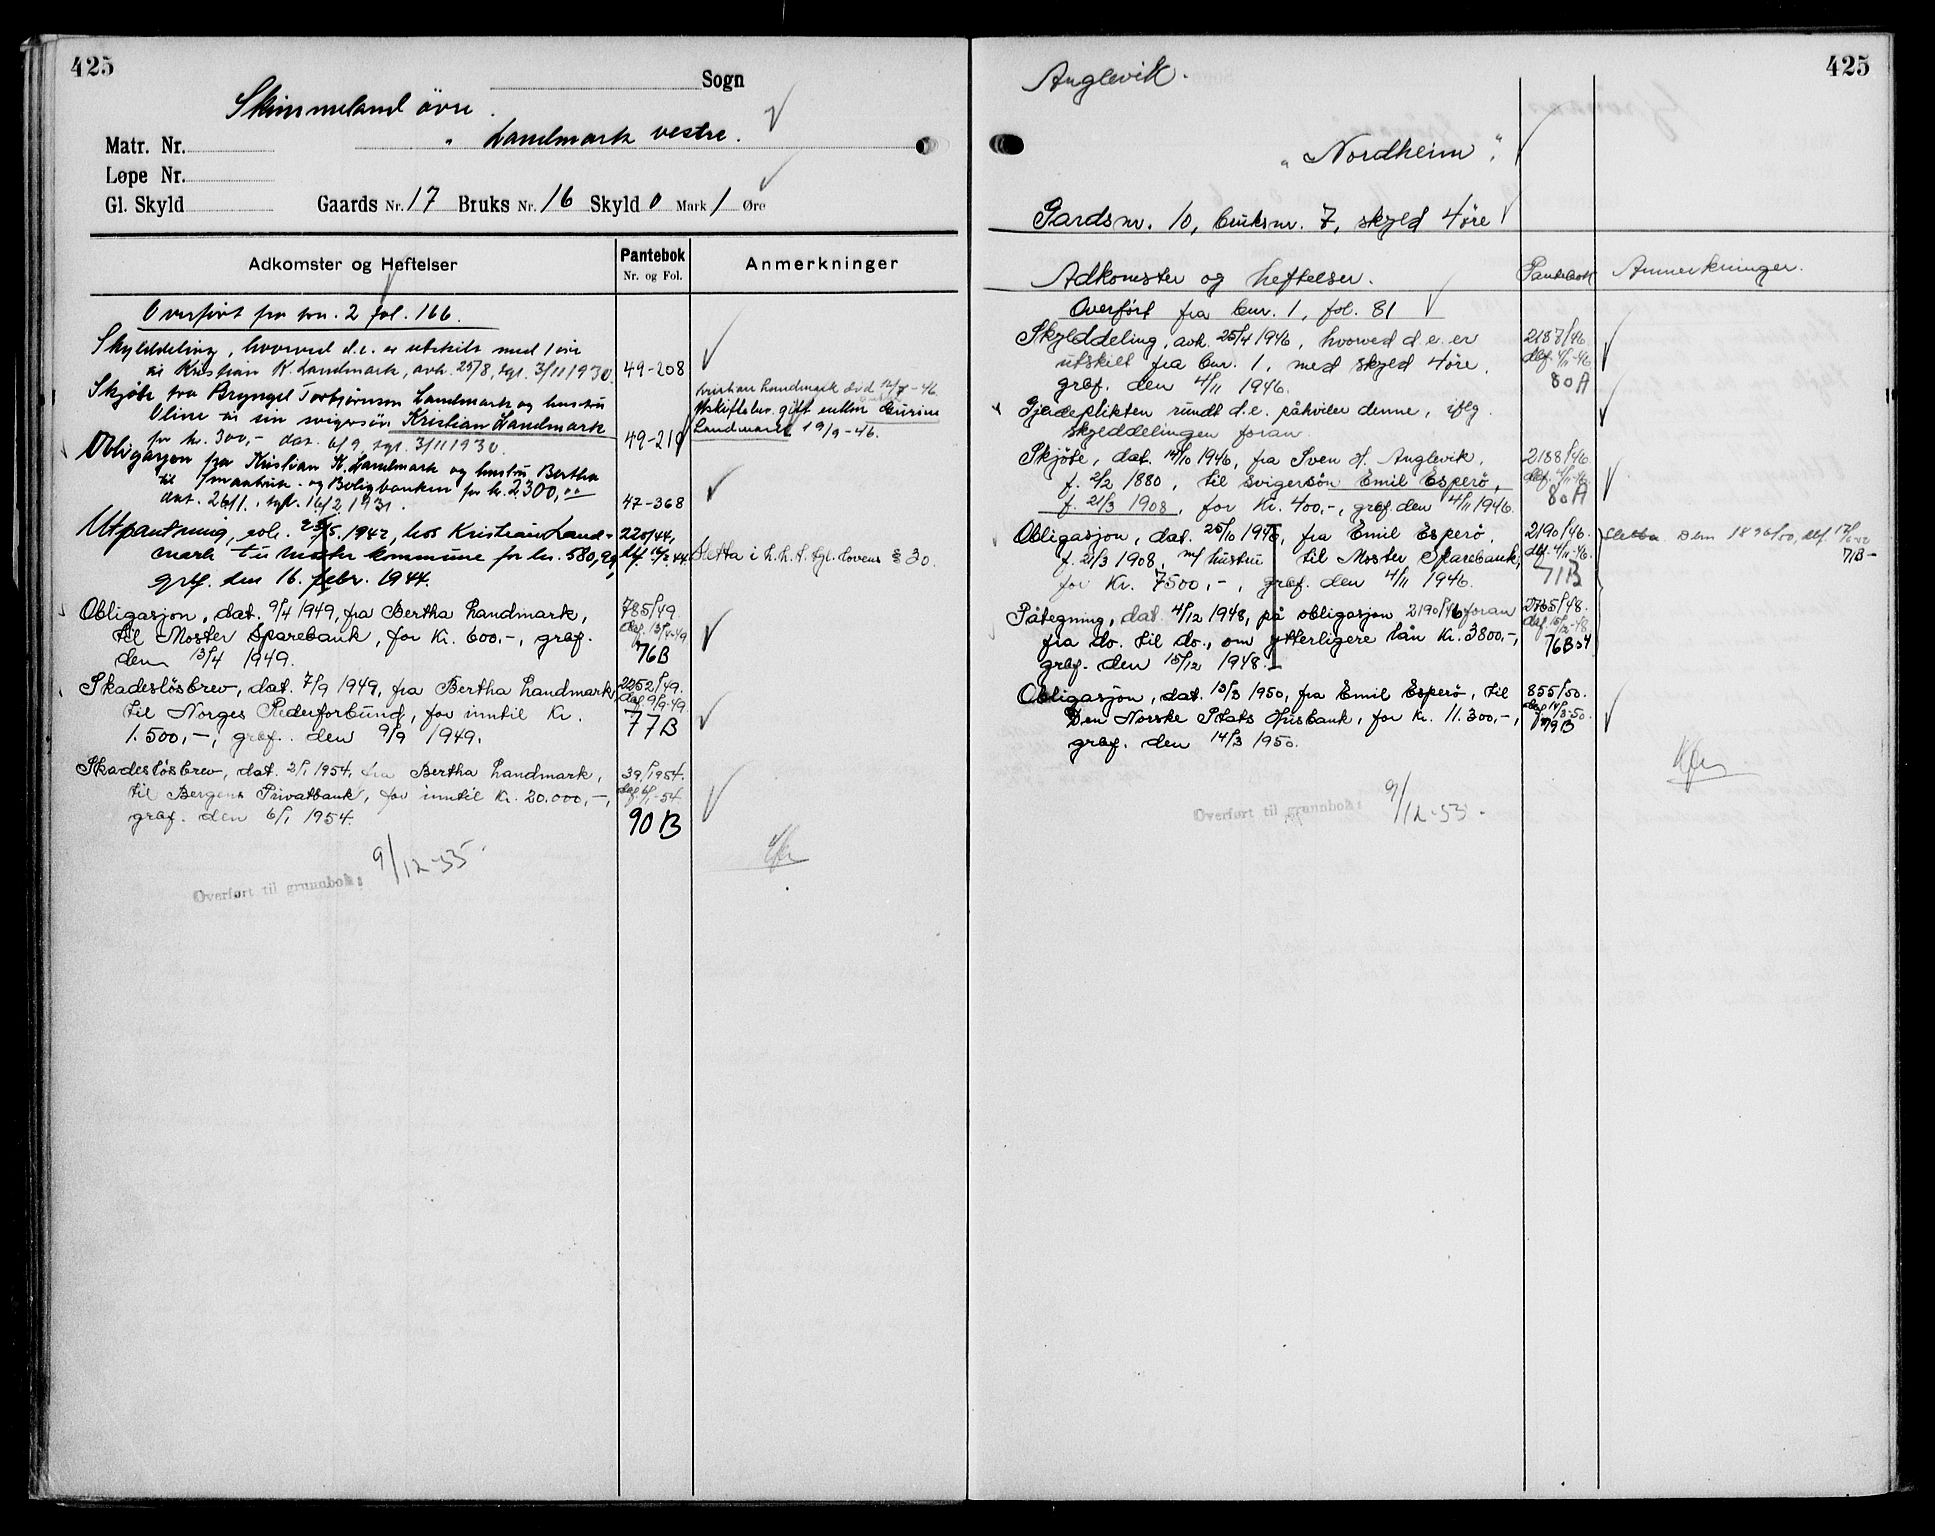 425
Sogn
Skimmeland övre.
" Landmark vestre.
Matr. Nr.
Løpe Nr.
Gl. Skyld
Gaards Nr. 17 Bruks Nr. 16 Skyld 0 Mark 1 Øre
Adkomster og Heftelser
Pantebok
Nr. og Fol.
Anmerkninger
Overfört fra bnr. 2 fol. 166.
Skylddeling, hvorved d.e. er utskilt med 1 öre
til Kristian K. Landmark, avh. 25/8, tgl. 3/11 1930. 49-208
Skjöte fra Bryngel Torbjörnsen Landmark og hustru
Oline til sin svigersön Kristian Landmark
for kr. 300,- dat. 6/9, tgl. 3/11 1930. 49-210
Kristian Landmark död 12/7-46.
Uskiftebev. gitt enken Gurine
Landmark 19/9-46.
Obligasjon fra Kristian K. Landmark og hustru Bertha
til Småbruk- og Boligbanken for kr. 2300,"
dat. 26/1, tgl. 16/2 1931. 47-368
Utpantning, evl. 23/5. 1942, hos Kristian Land-
mark til Moster kommune for kr. 580,
graf. den 16. febr. 1944.
220/44,
Sletta i h. h. t. tgl. lovens § 30.
Obligasjon, dat. 9/4 1949, fra Bertha Landmark,
til Moster Sparebank, for Kr. 600.-, graf.
den 13/4 1949.
785/49.
daf. 13/4-49
76B
Skadeslösbrev, dat. 7/9 1949, fra Bertha Landmark,
til Norges Rederforbund, for inntil Kr.
1.500,-, graf. den 9/9 1949.
2252/49.
daf. 9/9-49
77B
Skadeslösbrev, dat. 2/1 1954, fra Bertha Landmark,
til Bergens Privatbank, for inntil Kr. 20.000,-,
graf. den 6/1 1954.
39/1954.
daf. 6/1-54
90B
Overført til grunnbok: 9/12-55.
425
Anglevik.
"Nordheim".
Gardsnr. 10, bruksnr. 7, skyld 4 øre
Adkomster og heftelser.
Pantebok
Anmerkninger.
Overfört fra bnr. 1, fol. 81
Skylddeling, avh. 25/4 1946, hvorved d.e. er
utskilt fra bnr. 1, med skyld 4 øre,
graf. den 4/11 1946.
2187/46.
daf. 4/11-46
80A
Gjerdeplikten rundt d.e. påhviler denne, iflg.
skylddelingen foran.
Skjöte, dat. 14/10 1946, fra Sven H. Anglevik,
f. 2/2 1880, til svigersön Emil Esperö,
f. 21/3 1908, for Kr. 400,-, graf. den 4/11 1946.
2188/46
daf. 4/11-46
80A
Obligasjon, dat. 25/10 1946, fra Emil Esperö,
f. 21/3 1908, m/ hustru til Moster Sparebank,
for Kr. 7500,-, graf. den 4/11 1946.
2190/46.
daf. 4/11-46.
71B
Sletta.
71B-
Påtegning, dat. 4/12 1948, på obligasjon 2190/46 foran
fra do. til do., om ytterligere lån Kr. 3800,-,
graf. den 15/12 1948.
2735/48.
daf. 15/12-48
76B
Obligasjon, dat. 13/3 1950, fra Emil Esperö, til
Den Norske Stats Husbank, for Kr. 11.300,-,
graf. den 14/3 1950.
855/50.
daf. 14/3-50.
79B
Overført til grunnbok: 9/12-53.